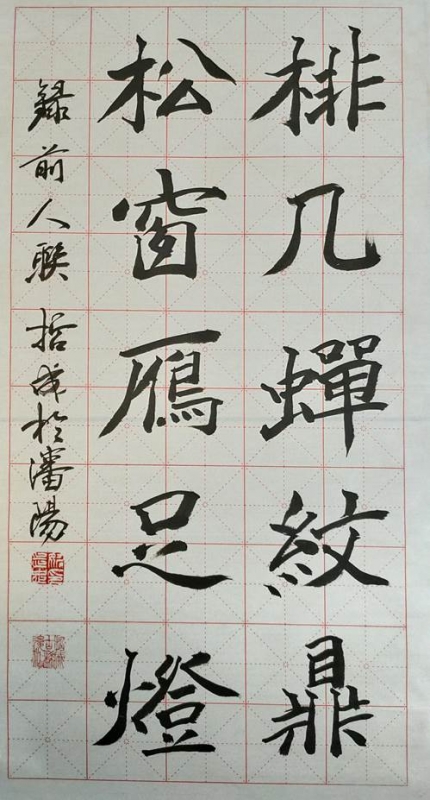 棐几蟬紋鼎
松窗鴈足燈
錄前人聯 哲成於瀋陽